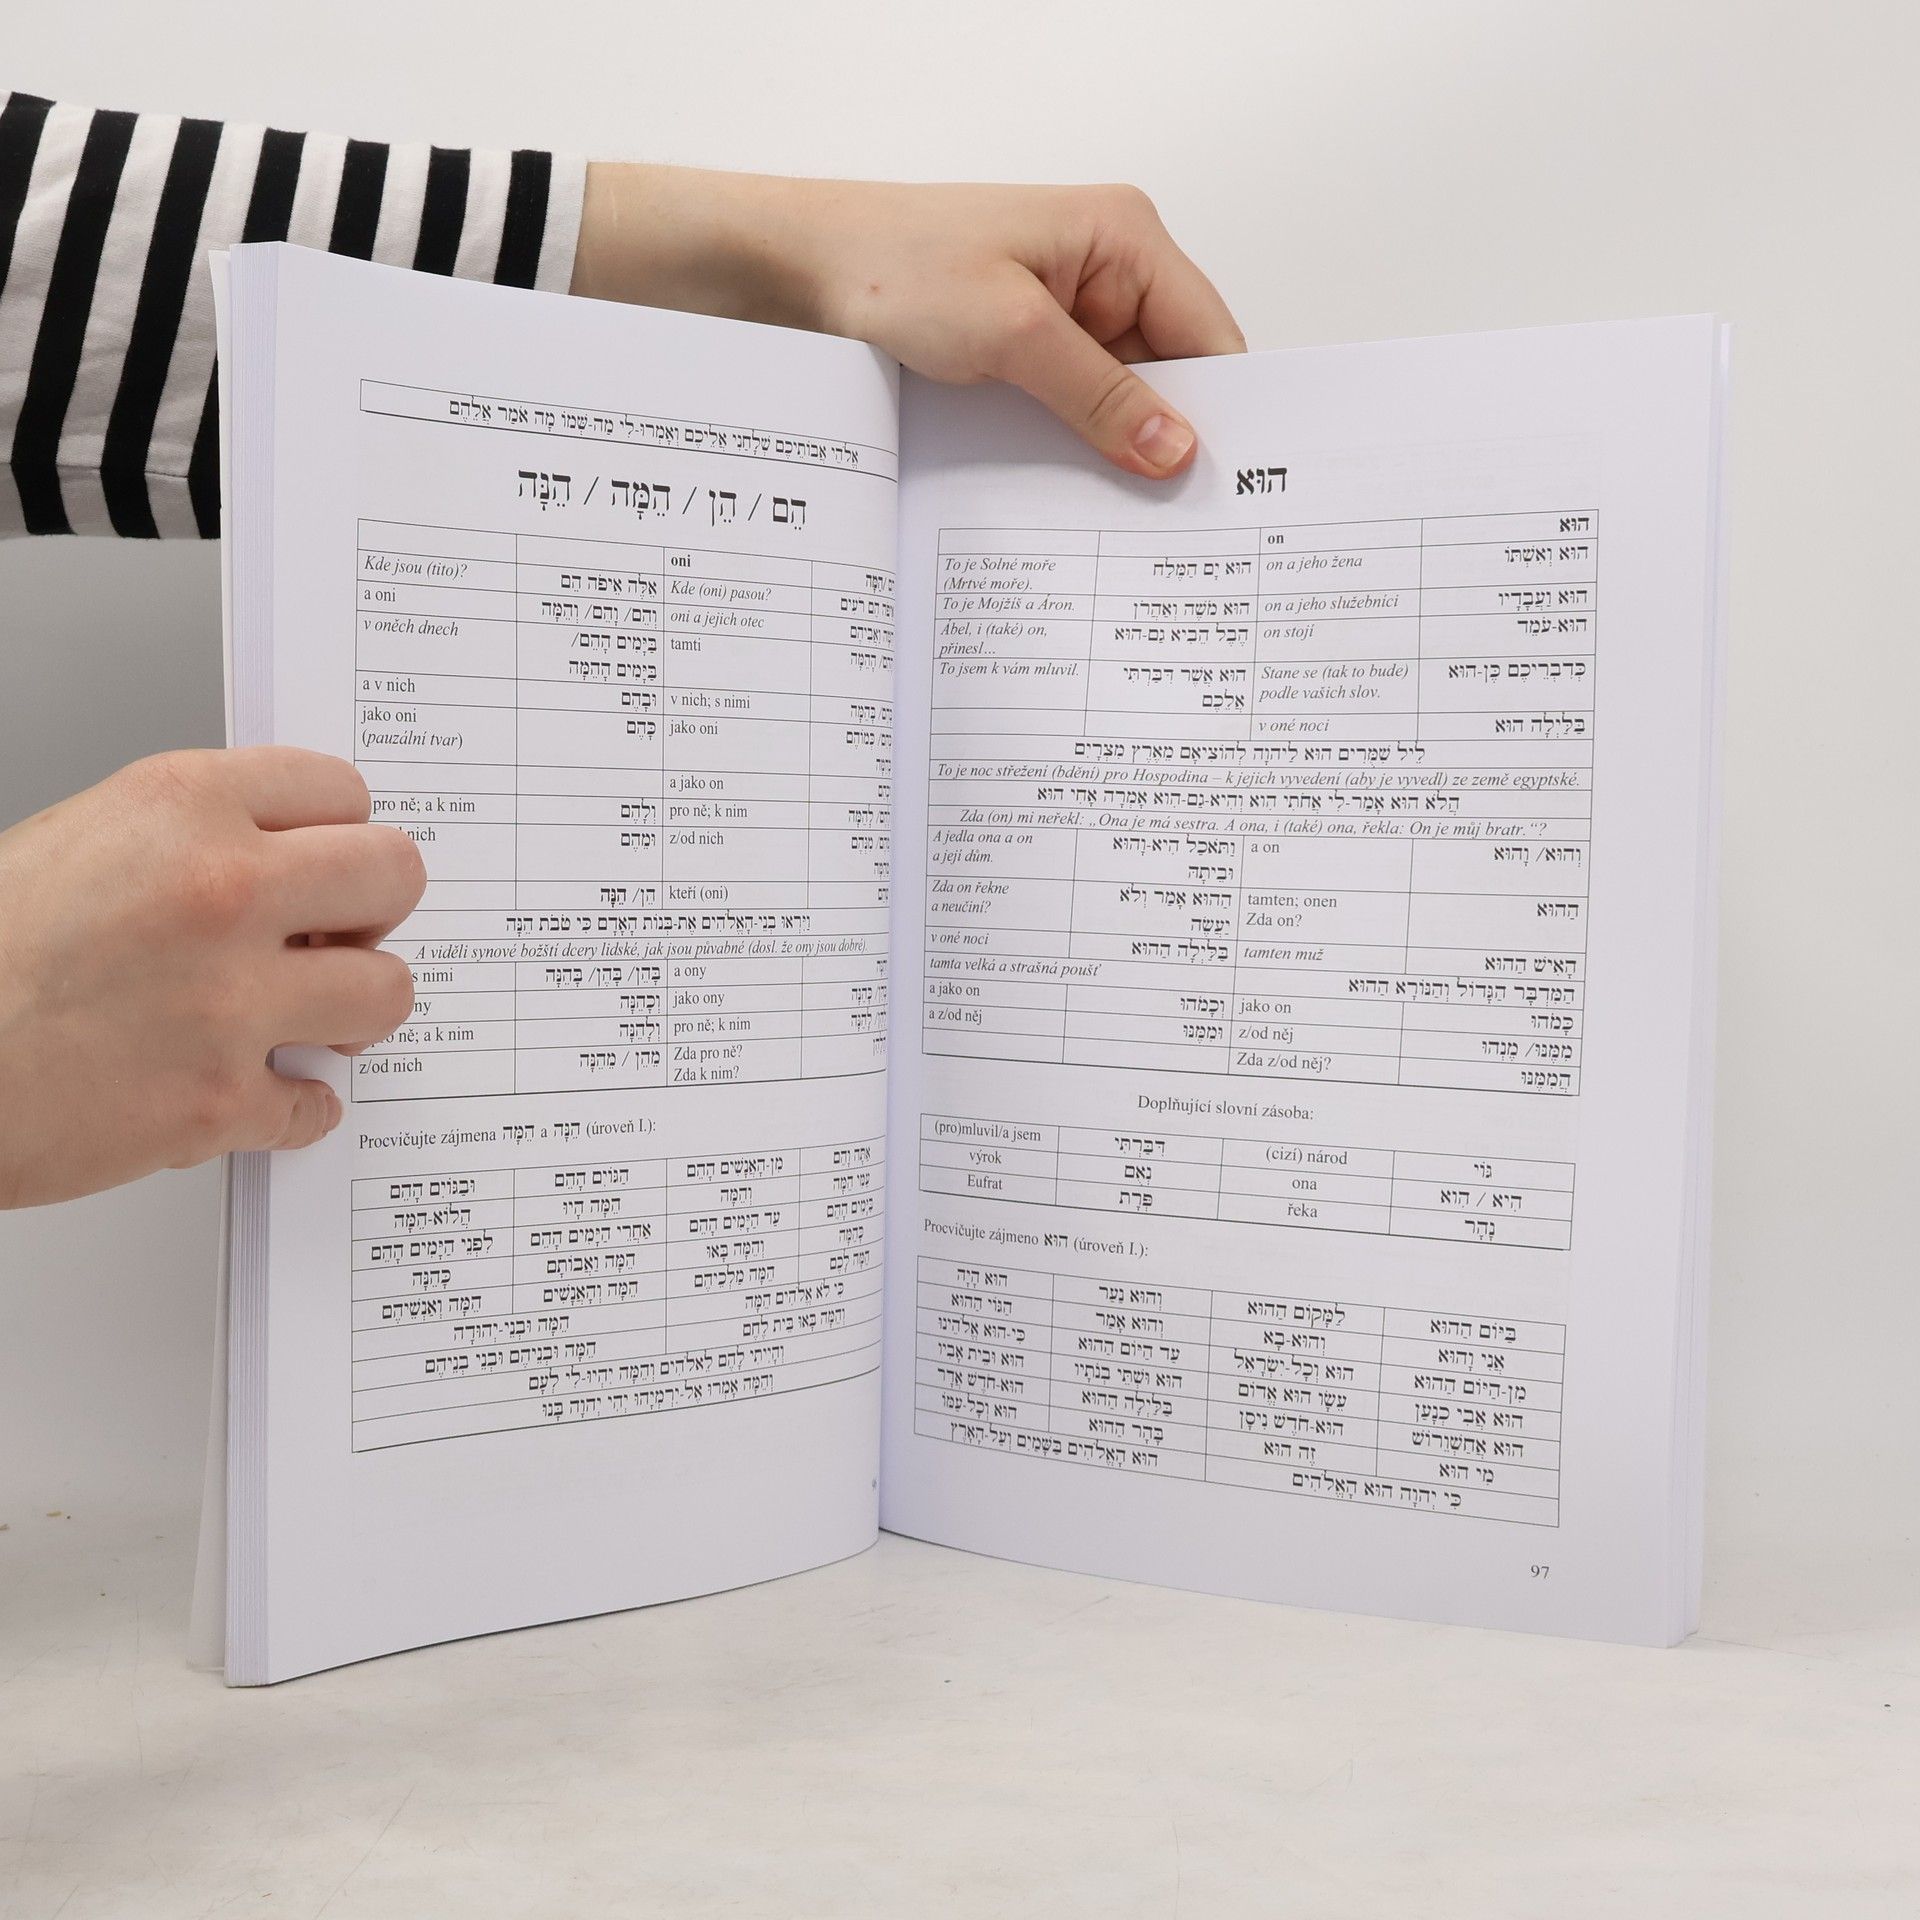 אֱלֹהֵי אֲבוֹתֵיכֶם שְׁלָחַנִי אֲלֵיכֶם וְאָמְרוּ-לִי מַה-שְּׁמוֹ מָה אֹמַר אֲלֵהֶם
הֵם / הֵן / הֵמָּה / הֵנָּה
oni
Kde jsou (tito)? אֵלֶּה אֵיפֹה הֵם Kde (oni) pasou?
a oni וְהֵם/ וָהֵם/ וְהֵמָּה oni a jejich otec
v oněch dnech בַּיָּמִים הָהֵם/ tamti
בַּיָּמִים הָהֵמָּה
a v nich וּבָהֶם v nich; s nimi
jako oni כָּהֶם jako oni
(pauzální tvar)
a jako on
pro ně; a k nim וְלָהֶם pro ně; k nim
nich וּמֵהֶם z/od nich
הֵן/ הֵנָּה kteří (oni)
וַיִּרְאוּ בְנֵי-הָאֱלֹהִים אֶת-בְּנוֹת הָאָדָם כִּי טֹבֹת הֵנָּה
A viděli synové božští dcery lidské, jak jsou půvabné (dosl. že ony jsou dobré).
s nimi בָּהֵן/ בָּהֶן/ בָּהֵנָּה a ony
ny וְכָהֵנָּה jako ony
pro ně; a k nim וְלָהֵנָּה pro ně; k nim
z/od nich מֵהֵן / מֵהֵנָּה Zda pro ně?
Zda k nim?
Procvičujte zájmena הֵמָּה a הֵנָּה (úroveň I.):
וּבַגּוֹיִם הָהֵם הַגּוֹיִם הָהֵם מִן-הָאֲנָשִׁים הָהֵם אַתָּה וָהֵם
הֲלוֹא-הֵמָּה הֵמָּה הָיוּ וְהֵמָּה עַמִּי הֵמָּה
לִפְנֵי הַיָּמִים הָהֵם אַחֲרֵי הַיָּמִים הָהֵם עַד הַיָּמִים הָהֵם בַּיָּמִים הָהֵם
כָּהֵנָּה הֵמָּה וַאֲבוֹתָם וְהֵמָּה בָּאוּ כָּהֵמָּה
הֵמָּה וְאַנְשֵׁיהֶם הֵמָּה וְהָאֲנָשִׁים הֵמָּה מַלְכֵיהֶם הֵמָּה לָכֶם
הֵמָּה וּבְנֵי-יְהוּדָה כִּי לֹא אֱלֹהִים הֵמָּה
הֵמָּה וּבְנֵיהֶם וּבְנֵי בְנֵיהֶם וְהֵמָּה בָּאוּ בֵּית לֶחֶם
וְהָיִיתִי לָהֶם לֵאלֹהִים וְהֵמָּה יִהְיוּ-לִי לְעָם
וְהֵמָּה אָמְרוּ אֶל-יִרְמְיָהוּ יְהִי יְהוָה בָּנוּ
הוּא
on הוּא
To je Solné moře הוּא יָם הַמֶּלַח on a jeho žena הוּא וְאִשְׁתּוֹ
(Mrtvé moře).
To je Mojžíš a Áron. הוּא מֹשֶׁה וְאַהֲרֹן on a jeho služebníci הוּא וַעֲבָדָיו
Ábel, i (také) on, הֶבֶל הֵבִיא גַם-הוּא on stojí הוּא-עֹמֵד
přinesl…
To jsem k vám mluvil. הוּא אֲשֶׁר דִּבַּרְתִּי Stane se (tak to bude) כְּדִבְרֵיכֶם כֶּן-הוּא
אֲלֵכֶם podle vašich slov.
v oné noci בַּלַּיְלָה הוּא
לֵיל שִׁמֻּרִים הוּא לַיהוָה לְהוֹצִיאָם מֵאֶרֶץ מִצְרָיִם
To je noc střežení (bdění) pro Hospodina – k jejich vyvedení (aby je vyvedl) ze země egyptské.
הֲלֹא הוּא אָמַר-לִי אֲחֹתִי הִוא וְהִיא-גַם-הִוא אָמְרָה אָחִי הוּא
Zda (on) mi neřekl: „Ona je má sestra. A ona, i (také) ona, řekla: On je můj bratr.“?
A jedla ona a on וַתֹּאכַל הִיא-וָהוּא a on וְהוּא/ וָהוּא
a její dům. וּבֵיתָהּ
Zda on řekne הַהוּא אָמַר וְלֹא tamten; onen הַהוּא
a neučiní? יַעֲשֶׂה Zda on?
v oné noci בַּלַּיְלָה הַהוּא tamten muž הָאִישׁ הַהוּא
tamta velká a strašná poušť הַמִּדְבָּר הַגָּדוֹל וְהַנּוֹרָא הַהוּא
a jako on וְכָמֹהוּ jako on כָּמֹהוּ
a z/od něj וּמִמֶּנּוּ z/od něj מִמֶּנּוּ/ מֶנְהוּ
Zda z/od něj? הֲמִמֶּנּוּ
Doplňující slovní zásoba:
(pro)mluvil/a jsem דִּבַּרְתִּי (cizí) národ גּוֹי
výrok נְאֻם ona הִיא / הִוא
Eufrat פְּרָת řeka נָהָר
Procvičujte zájmeno הוּא (úroveň I.):
הוּא הָיָה וְהוּא נַעַר לַמָּקוֹם הַהוּא בַּיּוֹם הַהוּא
הַגּוֹי הַהוּא וְהוּא אָמַר וְהוּא-בָא אֲנִי וָהוּא
כִּי-הוּא אֱלֹהֵינוּ עַד הַיּוֹם הַהוּא הוּא וְכָל-יִשְׂרָאֵל מִן-הַיּוֹם הַהוּא
הוּא וּבֵית אָבִיו הוּא וּשְׁתֵּי בְנֹתָיו עֵשָׂו הוּא אֱדוֹם הוּא אֲבִי כְנָעַן
הוּא-חֹדֶשׁ אֲדָר בַּלַּיְלָה הַהוּא הוּא-חֹדֶשׁ נִיסָן הוּא אֲחַשְׁוֵרוֹשׁ
הוּא וְכָל-עַמּוֹ בָּהָר הַהוּא זֶה הוּא מִי הוּא
הוּא הָאֱלֹהִים בַּשָּׁמַיִם וְעַל-הָאָרֶץ כִּי יְהוָה הוּא הָאֱלֹהִים
97